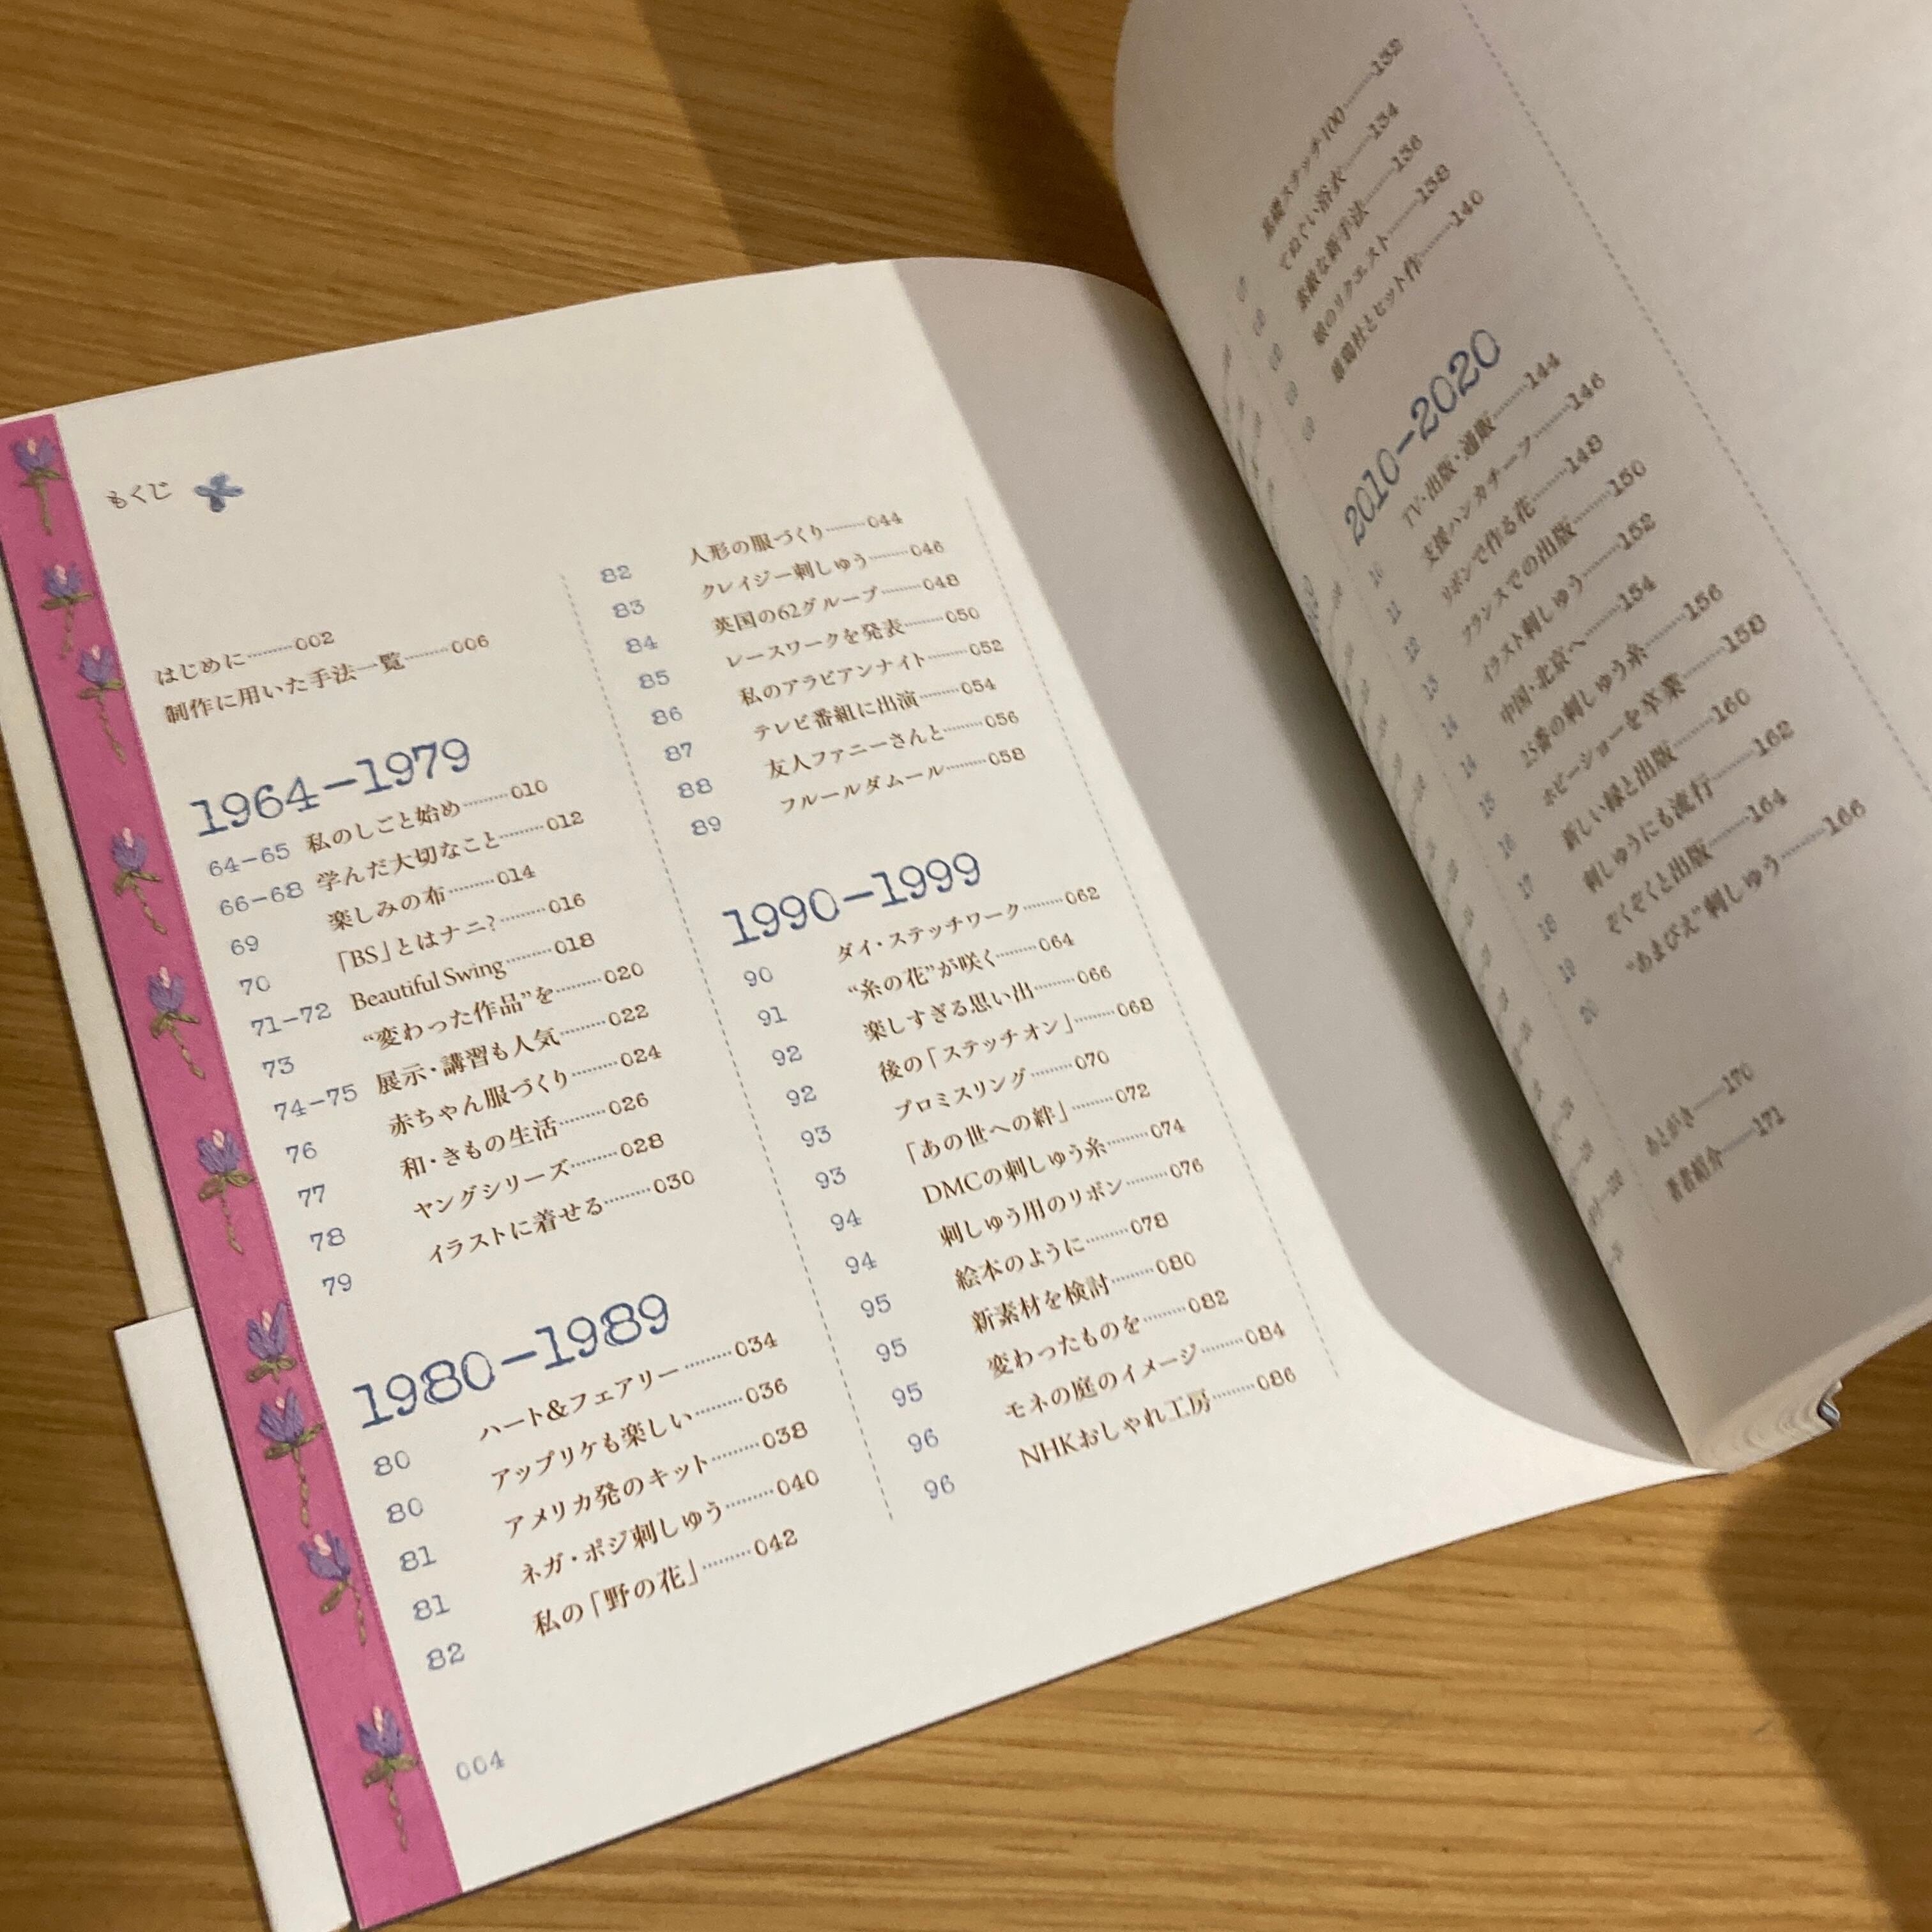 もくじ
はじめに………002
制作に用いた手法一覧………006
1964−1979
64−65 私のしごと始め………010
66−68 学んだ大切なこと………012
69 楽しみの布………014
70 「BS」とはナニ?………016
71−72 Beautiful Swing………018
73 “変わった作品”を………020
74−75 展示・講習も人気………022
76 赤ちゃん服づくり………024
77 和・きもの生活………026
78 ヤングシリーズ………028
79 イラストに着せる………030
1980−1989
80 ハート&フェアリー………034
80 アップリケも楽しい………036
81 アメリカ発のキット………038
81 ネガ・ポジ刺しゅう………040
82 私の「野の花」………042
82 人形の服づくり………044
83 クレイジー刺しゅう………046
84 英国の62グループ………048
85 レースワークを発表………050
86 私のアラビアンナイト………052
87 テレビ番組に出演………054
88 友人ファニーさんと………056
89 フルールダムール………058
1990−1999
90 ダイ・ステッチワーク………062
91 “糸の花”が咲く………064
92 楽しすぎる思い出………066
92 後の「ステッチオン」………068
93 プロミスリング………070
93 「あの世への絆」………072
94 DMCの刺しゅう糸………074
94 刺しゅう用のリボン………076
95 絵本のように………078
95 新素材を検討………080
95 変わったものを………082
96 モネの庭のイメージ………084
96 NHKおしゃれ工房………086
004
基礎ステッチ100………132
てぬぐい浴衣………134
素敵な新手法………136
娘のリクエスト………138
とヒット作………140
2010−2020
10 TV・出版・通販………144
11 支援ハンカチーフ………146
12 リボンで作る花………148
13 フランスでの出版………150
14 イラスト刺しゅう………152
14 中国・北京へ………154
15 25番の刺しゅう糸………156
16 ホビーショーを卒業………158
17 新しい縁と出版………160
18 刺しゅうにも流行………162
19 ぞくぞくと出版………164
20 “あまびえ”刺しゅう………166
あとがき………170
著者紹介………171